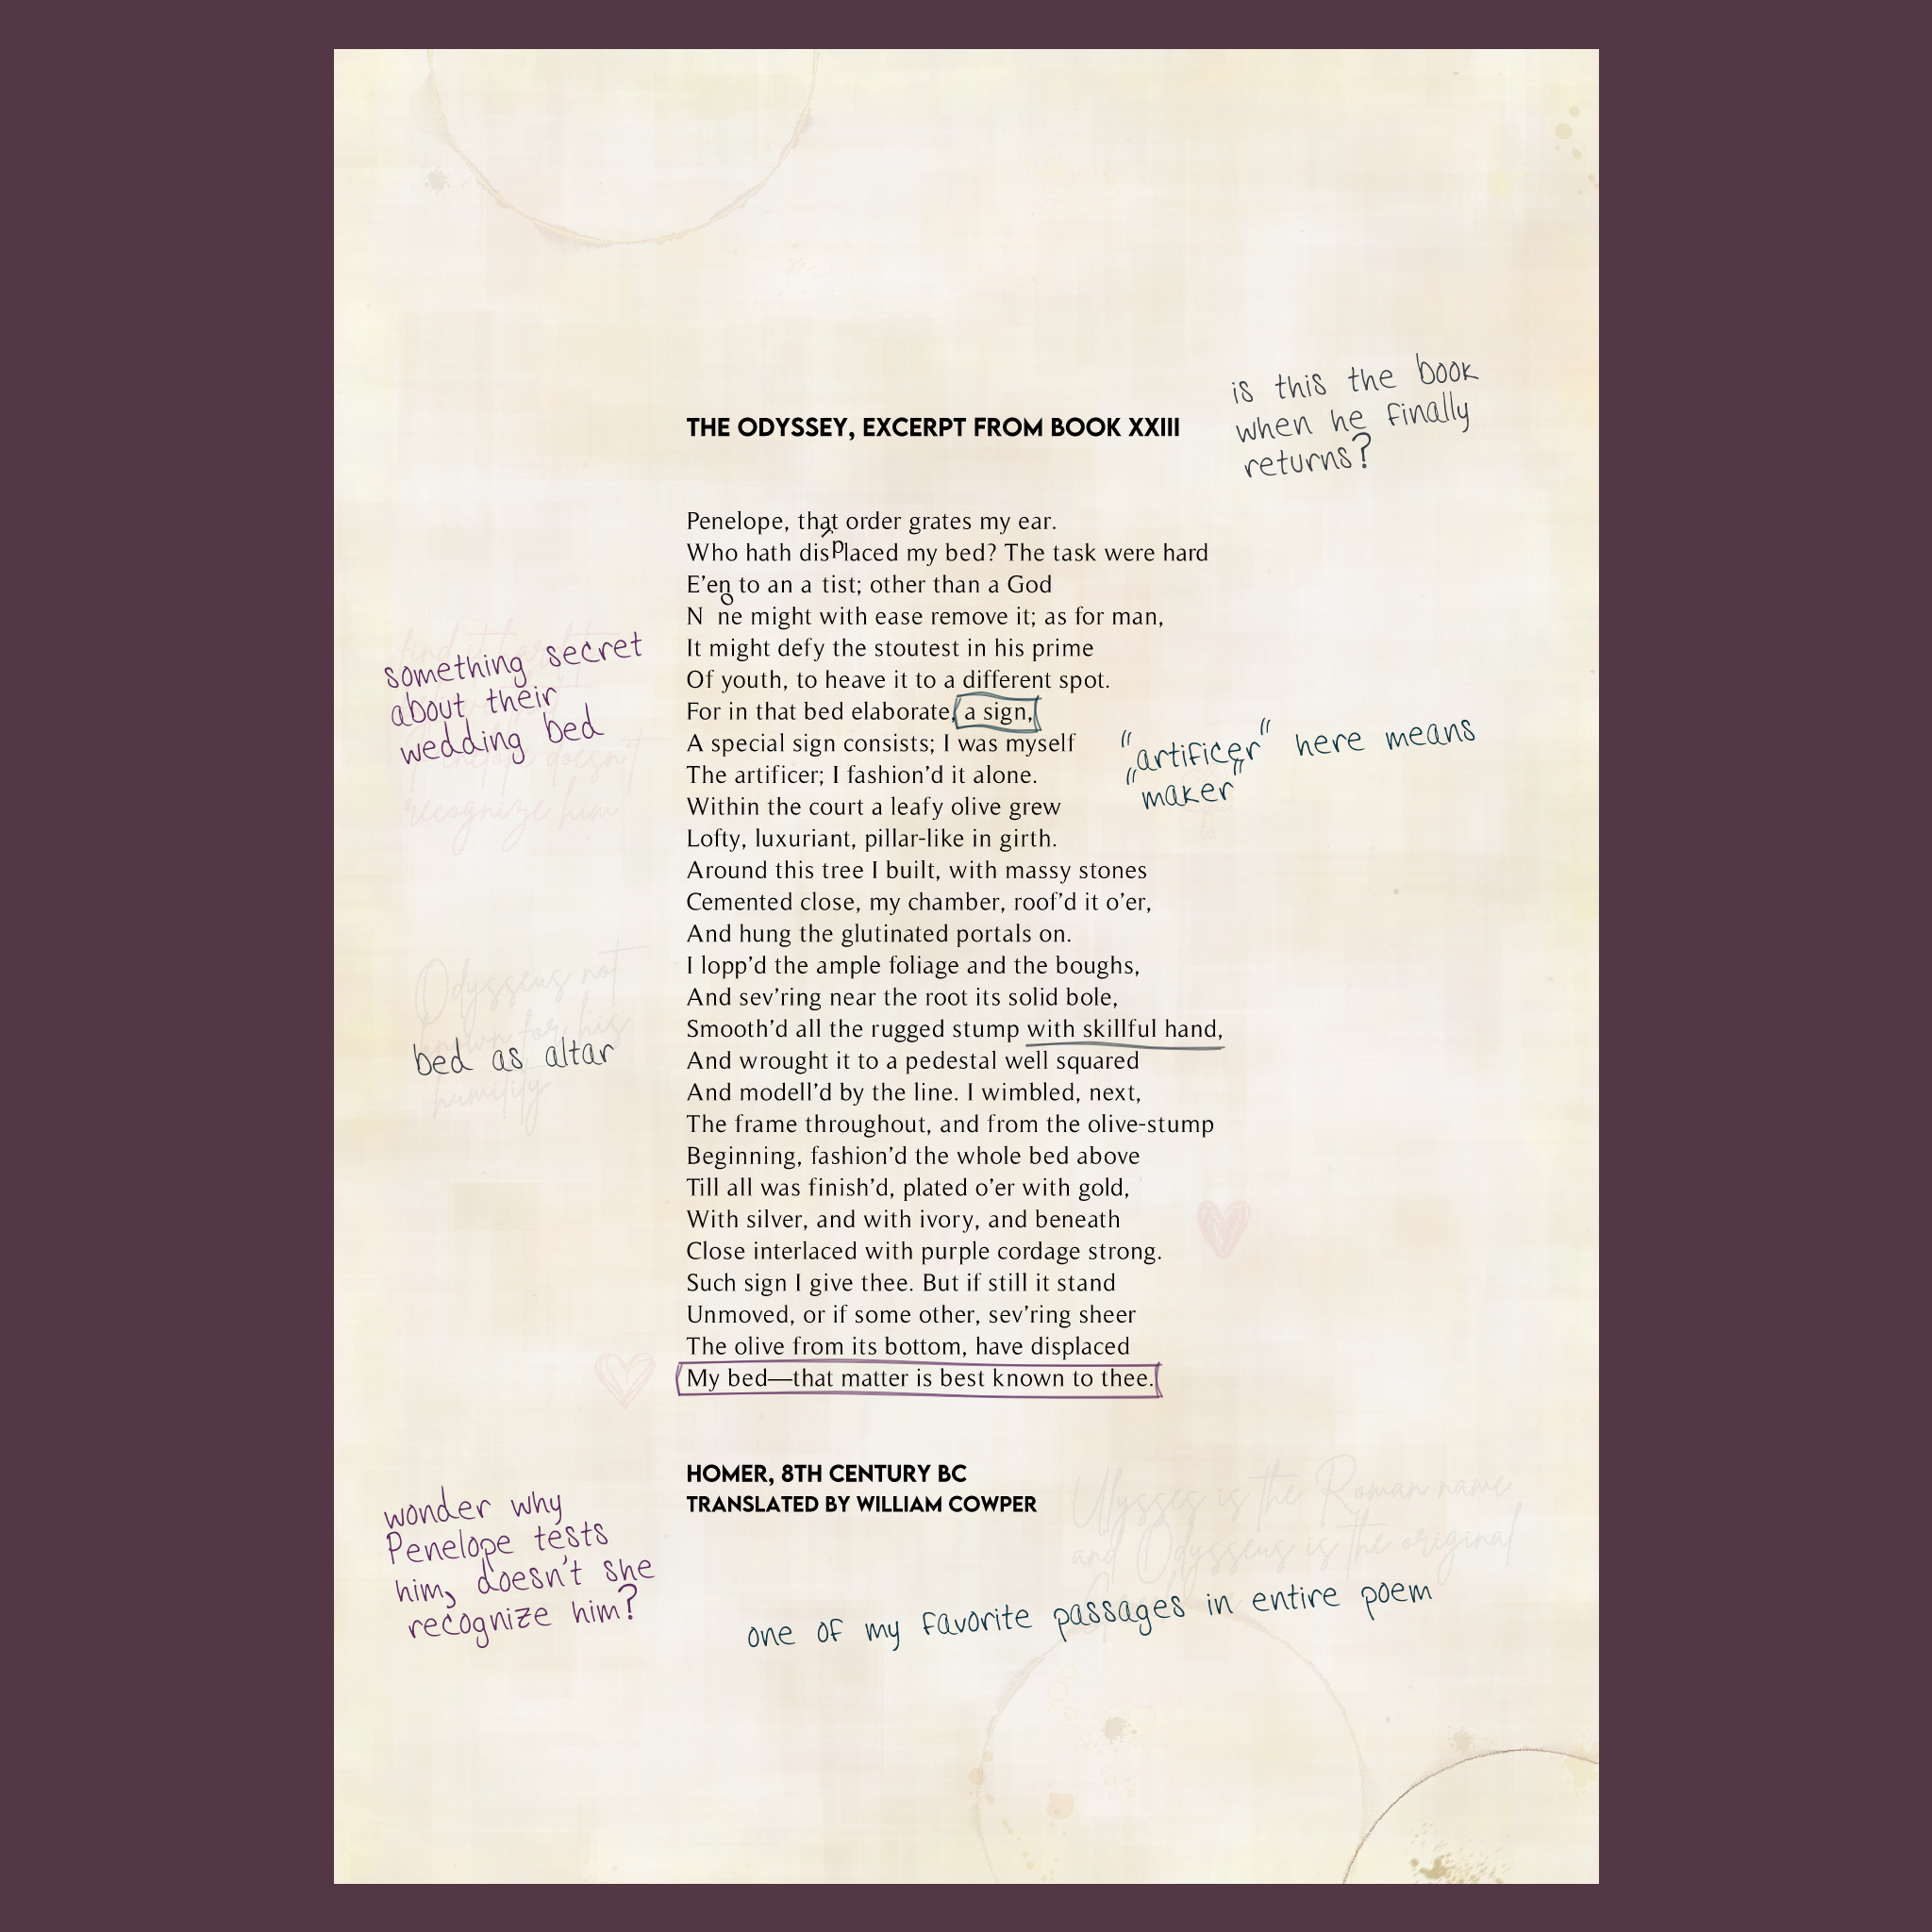 is this the book
when he finally
returns?
THE ODYSSEY, EXCERPT FROM BOOK XXIII
Penelope, that order grates my ear.
Who hath displaced my bed? The task were hard
E’en to an a tist; other than a God
None might with ease remove it; as for man,
It might defy the stoutest in his prime
Of youth, to heave it to a different spot.
For in that bed elaborate, a sign,
A special sign consists; I was myself
The artificer; I fashion’d it alone.
Within the court a leafy olive grew
Lofty, luxuriant, pillar-like in girth.
Around this tree I built, with massy stones
Cemented close, my chamber, roof’d it o’er,
And hung the glutinated portals on.
I lopp’d the ample foliage and the boughs,
And sev’ring near the root its solid bole,
Smooth’d all the rugged stump with skillful hand,
And wrought it to a pedestal well squared
And modell’d by the line. I wimbled, next,
The frame throughout, and from the olive-stump
Beginning, fashion’d the whole bed above
Till all was finish’d, plated o’er with gold,
With silver, and with ivory, and beneath
Close interlaced with purple cordage strong.
Such sign I give thee. But if still it stand
Unmoved, or if some other, sev’ring sheer
The olive from its bottom, have displaced
My bed—that matter is best known to thee.
something secret
about their
wedding bed
find it hard to
Penelope doesn't
recognize him
"artificer" here means
"maker"
Odysseus not
known for his
humility
bed as altar
HOMER, 8TH CENTURY BC
TRANSLATED BY WILLIAM COWPER
Ulysses is the Roman name
and Odysseus is the original
wonder why
Penelope tests
him, doesn't she
recognize him?
one of my favorite passages in entire poem